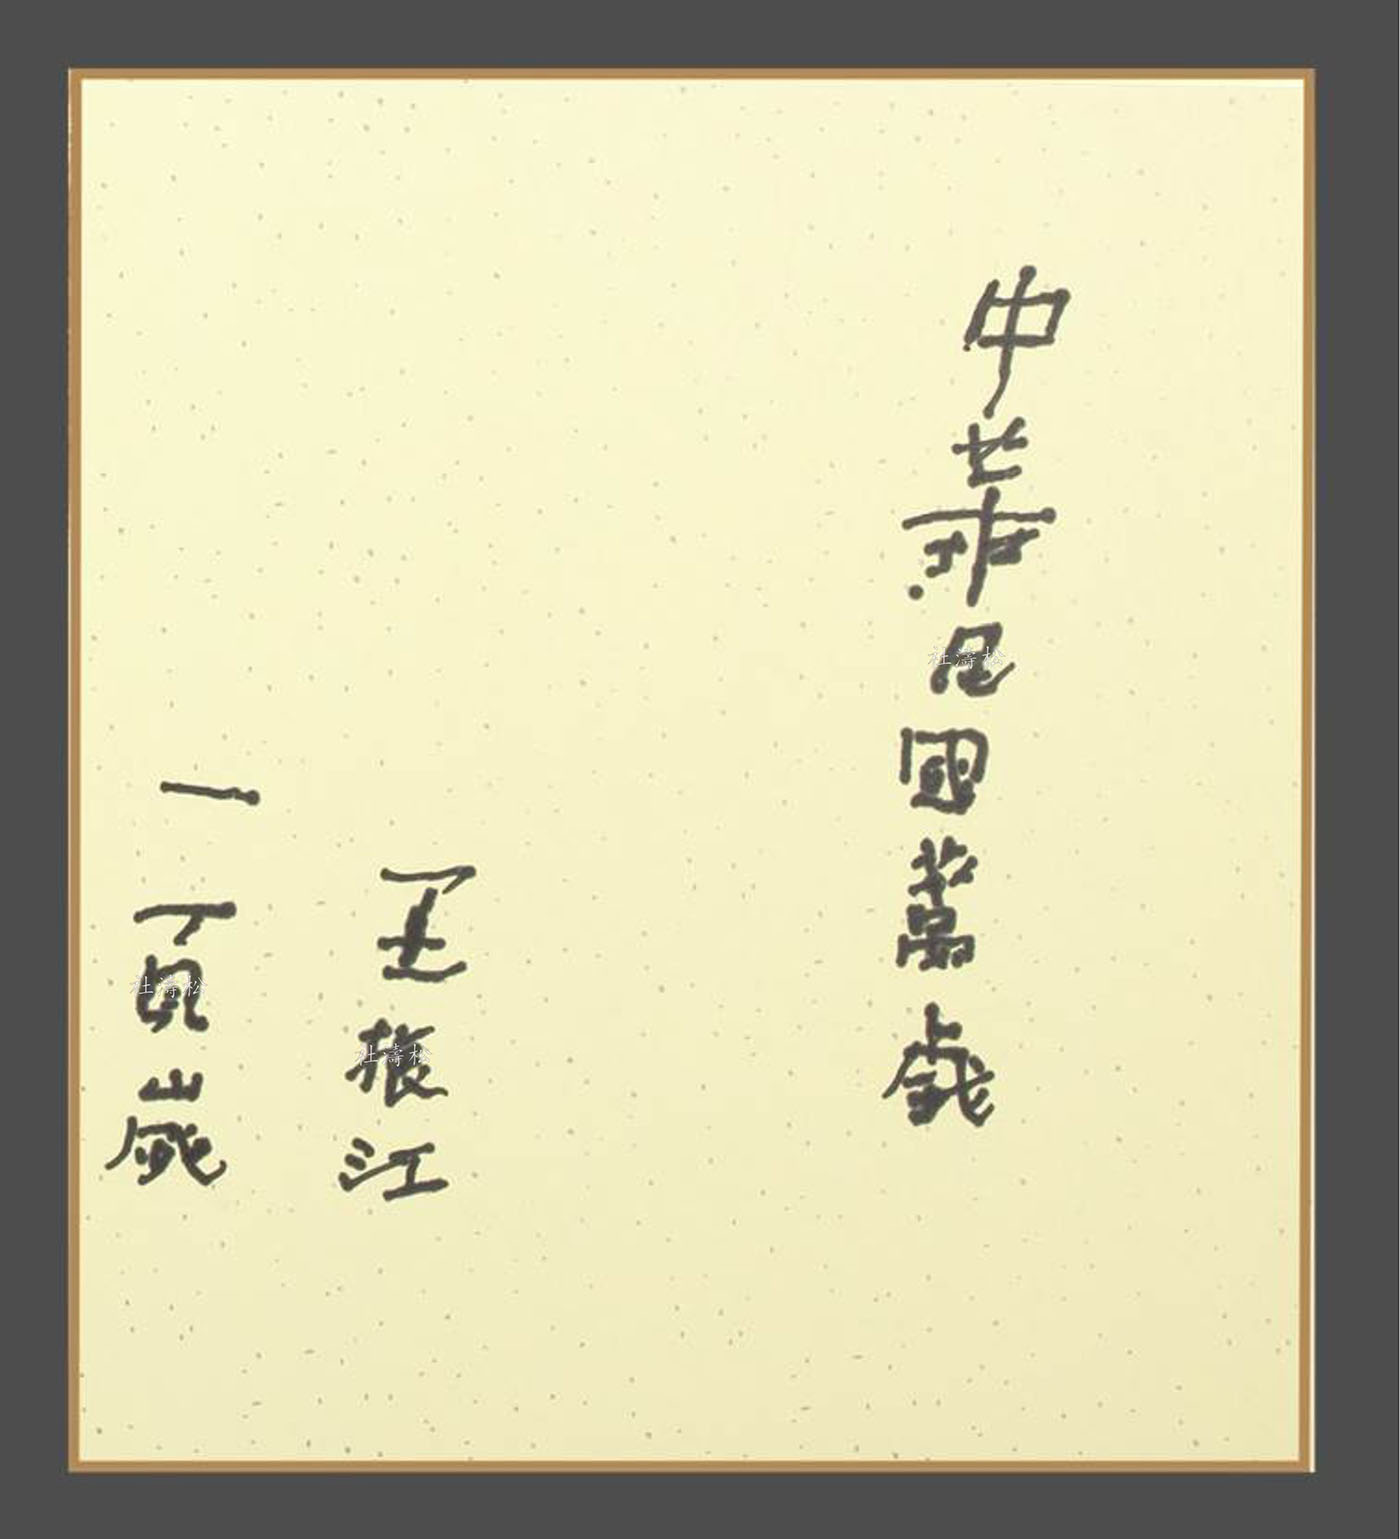 中華民國萬歲
王振江
一百歲
杜濤松
杜濤松
杜濤松